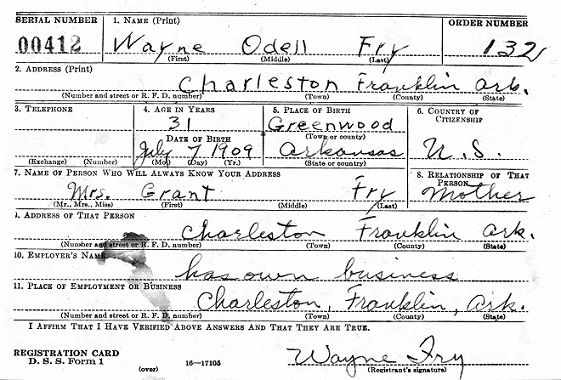 SERIAL NUMBER 1. NAME (Print) ORDER NUMBER
00412 Wayne Odell Fry 132
(First) (Middle) (Last)
2. ADDRESS (Print)
Charleston Franklin Ark.
(Number and street or R. F. D. number) (Town) (County) (State)
3. TELEPHONE 4. AGE IN YEARS 5. PLACE OF BIRTH 6. COUNTRY OF CITIZENSHIP
31 Greenwood
(Town or county)
DATE OF BIRTH
July 7 1909 Arkansas U. S.
(Exchange) (Number) (Mo.) (Day) (Yr.) (State or country)
7. NAME OF PERSON WHO WILL ALWAYS KNOW YOUR ADDRESS 8. RELATIONSHIP OF THAT PERSON
Mrs. Grant Fry Mother
(Mr., Mrs., Miss) (First) (Middle) (Last)
9. ADDRESS OF THAT PERSON
Charleston Franklin Ark.
(Number and street or R. F. D. number) (Town) (County) (State)
10. EMPLOYER'S NAME
has own business
11. PLACE OF EMPLOYMENT OR BUSINESS
Charleston, Franklin, Ark.
(Number and street or R. F. D. number) (Town) (County) (State)
I AFFIRM THAT I HAVE VERIFIED ABOVE ANSWERS AND THAT THEY ARE TRUE.
REGISTRATION CARD
D. S. S. Form 1 (over) 16—17105
Wayne Fry
(Registrant's signature)